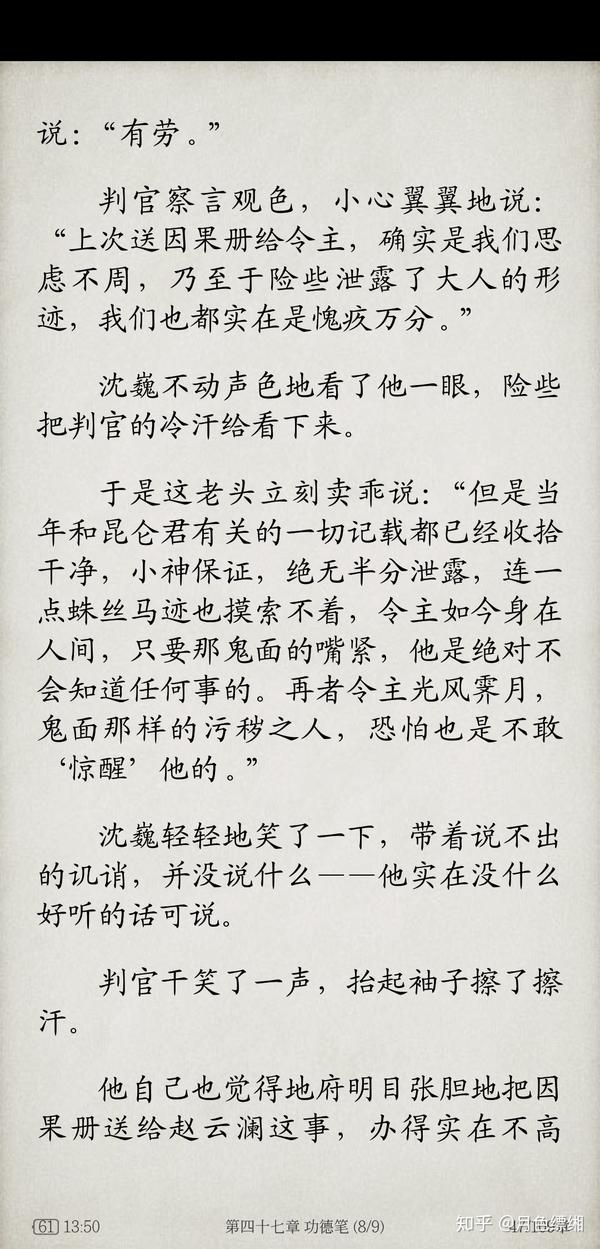 说：“有劳。”
判官察言观色，小心翼翼地说：
“上次送因果册给令主，确实是我们思
虑不周，乃至于险些泄露了大人的形
迹，我们也都实在是愧疚万分。”
沈巍不动声色地看了他一眼，险些
把判官的冷汗给看下来。
于是这老头立刻卖乖说：“但是当
年和昆仑君有关的一切记载都已经收拾
干净，小神保证，绝无半分泄露，连一
点蛛丝马迹也摸索不着，令主如今身在
人间，只要那鬼面的嘴紧，他是绝对不
会知道任何事的。再者令主光风霁月，
鬼面那样的污秽之人，恐怕也是不敢
‘惊醒’他的。”
沈巍轻轻地笑了一下，带着说不出
的讥诮，并没说什么——他实在没什么
好听的话可说。
判官干笑了一声，抬起袖子擦了擦
汗。
他自己也觉得地府明目张胆地把因
果册送给赵云澜这事，办得实在不高
61 13:50 第四十七章 功德笔 (8/9)
知乎 @月色缥缃